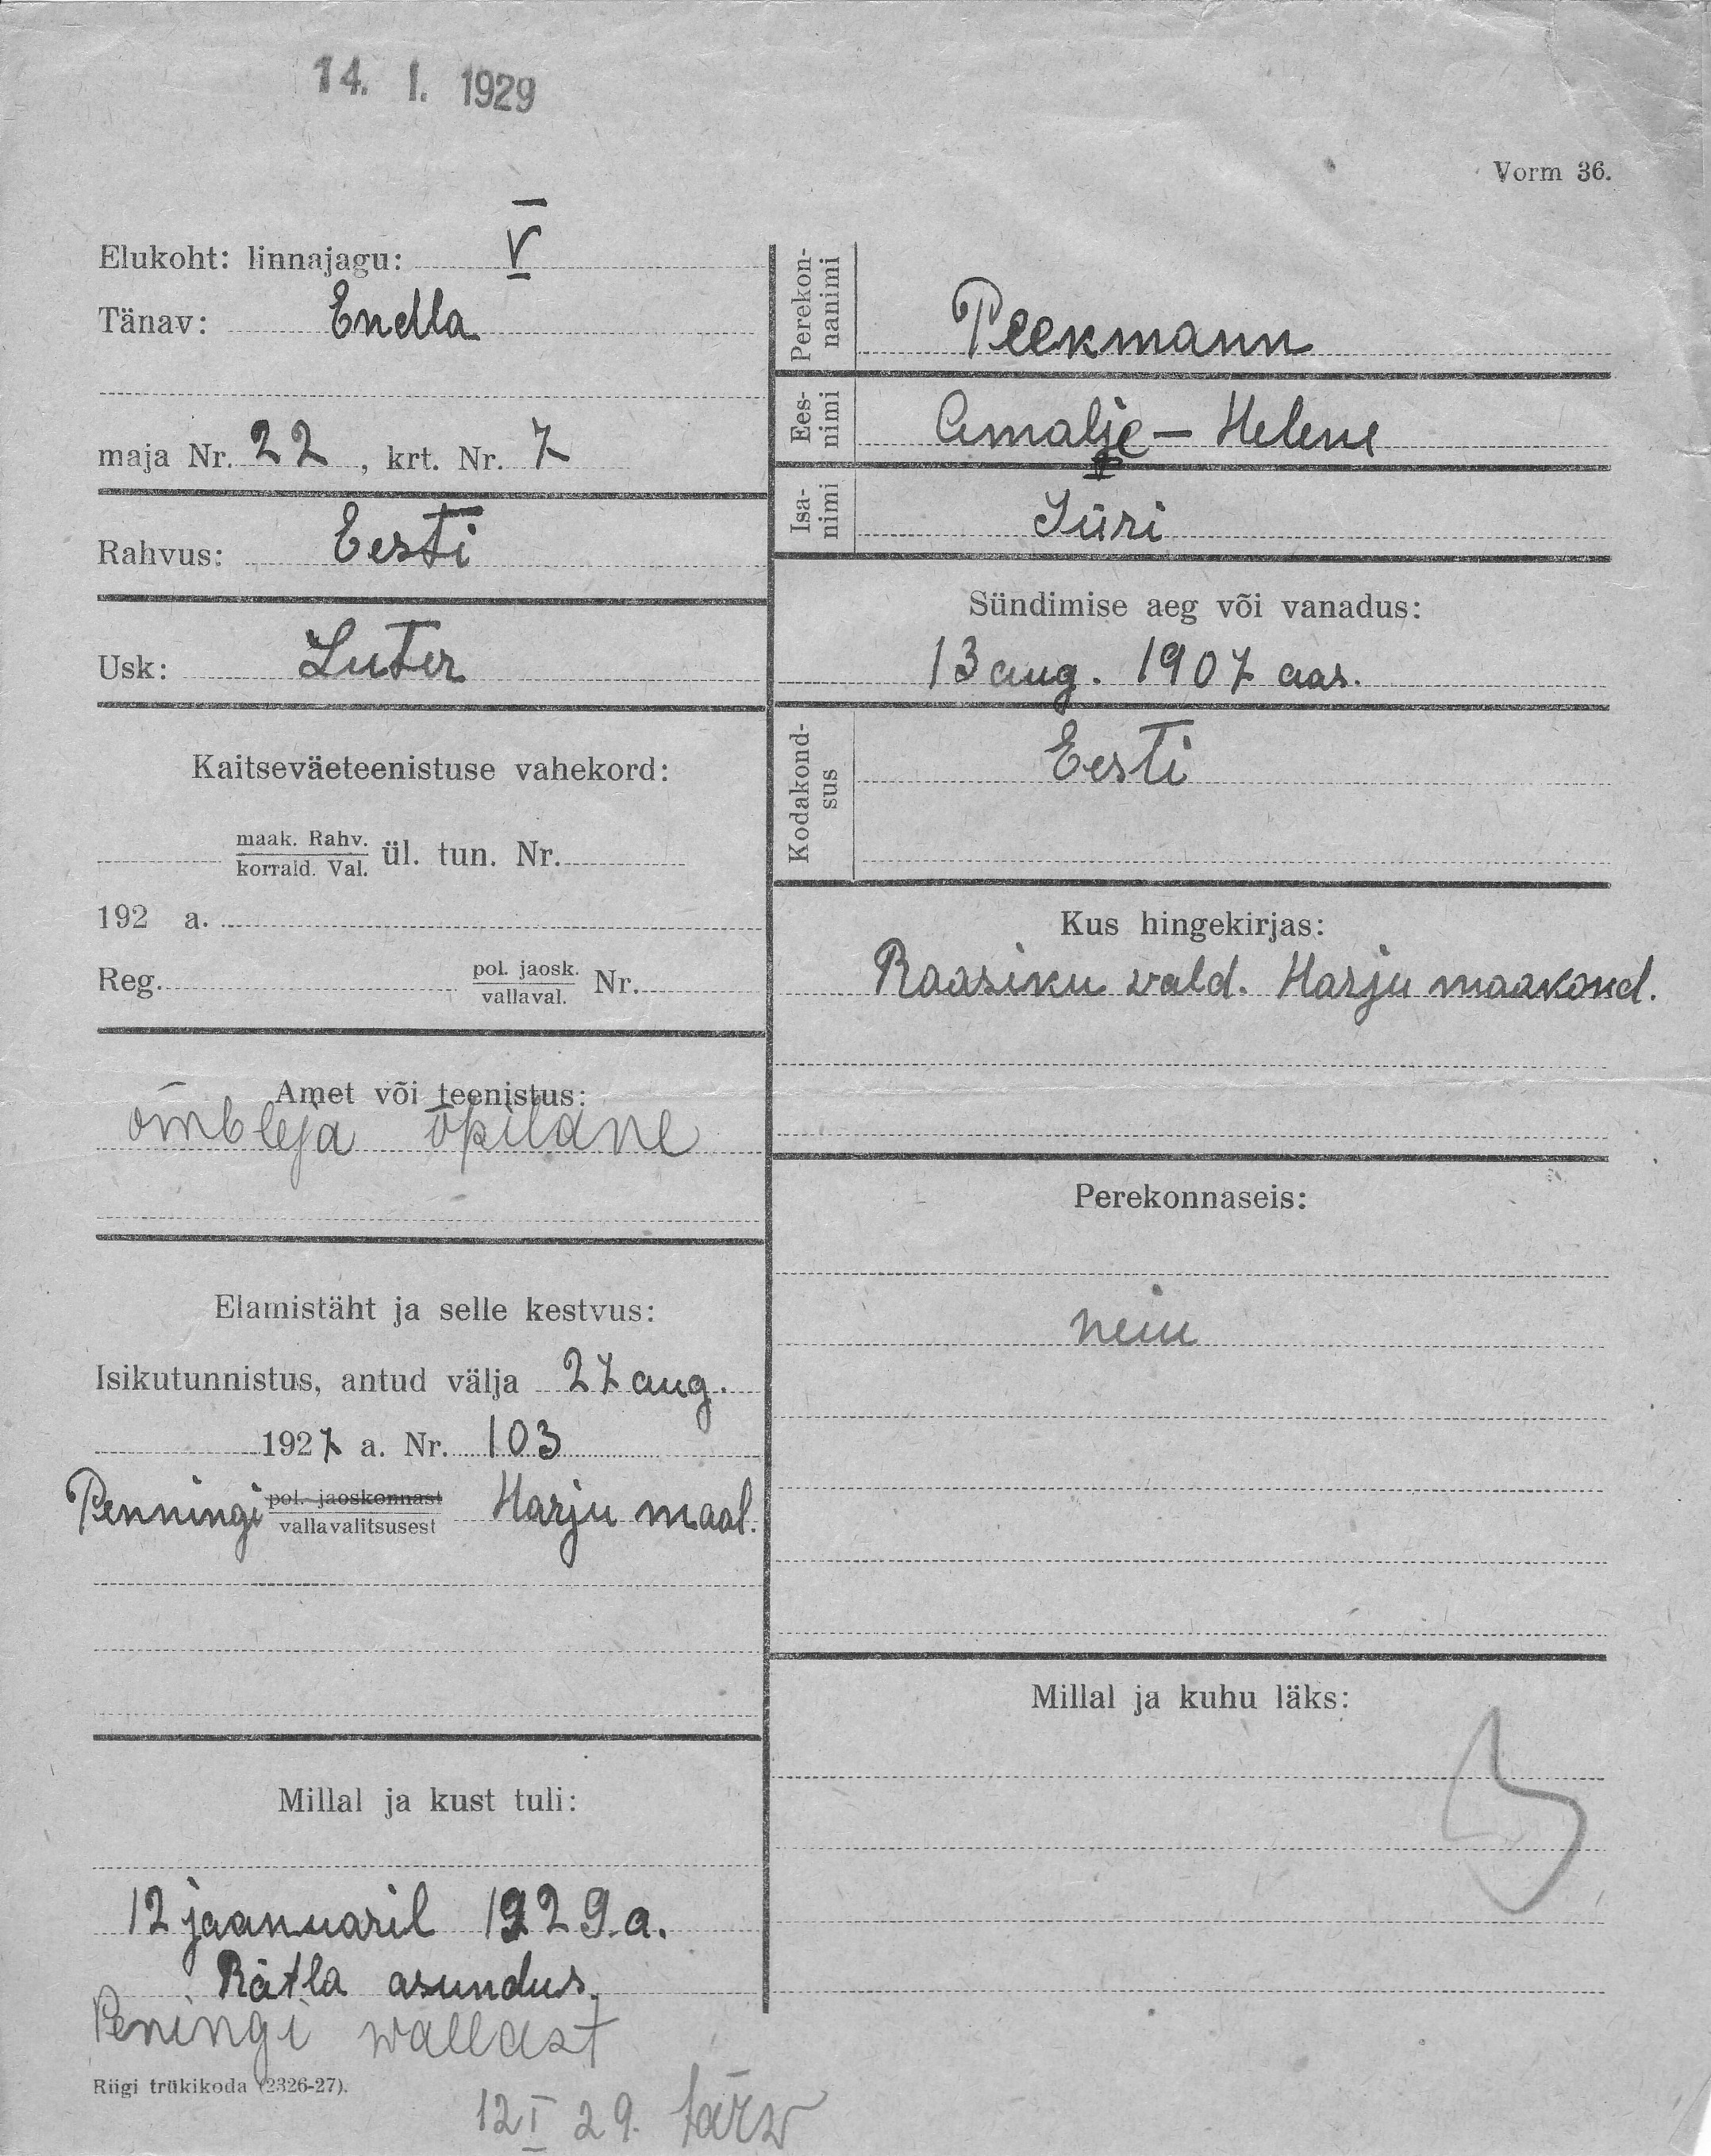 14. I. 1929
Vorm 36.
Elukoht: linnajagu: V
Tänav: Endla
maja Nr. 22, krt. Nr. 7
Rahvus: Eesti
Usk: Luter
Kaitseväeteenistuse vahekord:
maak. Rahv.
korrald. Val. ül. tun. Nr.
192 a.
Reg. pol. jaosk.
vallaval. Nr.
Amet või teenistus:
õmbleja õpilane
Elamistäht ja selle kestvus:
Isikutunnistus, antud välja 27 aug.
1927 a. Nr. 103
Penningi pol. jaoskonnast
vallavalitsusest Harju maal.
Millal ja kust tuli:
12 jaanuaril 1929.a.
Rätla asundus.
Peningi wallast
Riigi trükikoda (2326-27).
12 I 29.
Perekon-
nanimi Peekmann
Ees-
nimi Amalje - Helene
Isa-
nimi Jüri
Sündimise aeg või vanadus:
13 aug. 1907 aas.
Kodakond-
sus Eesti
Kus hingekirjas:
Raasiku vald. Harju maakond.
Perekonnaseis:
neiu
Millal ja kuhu läks: